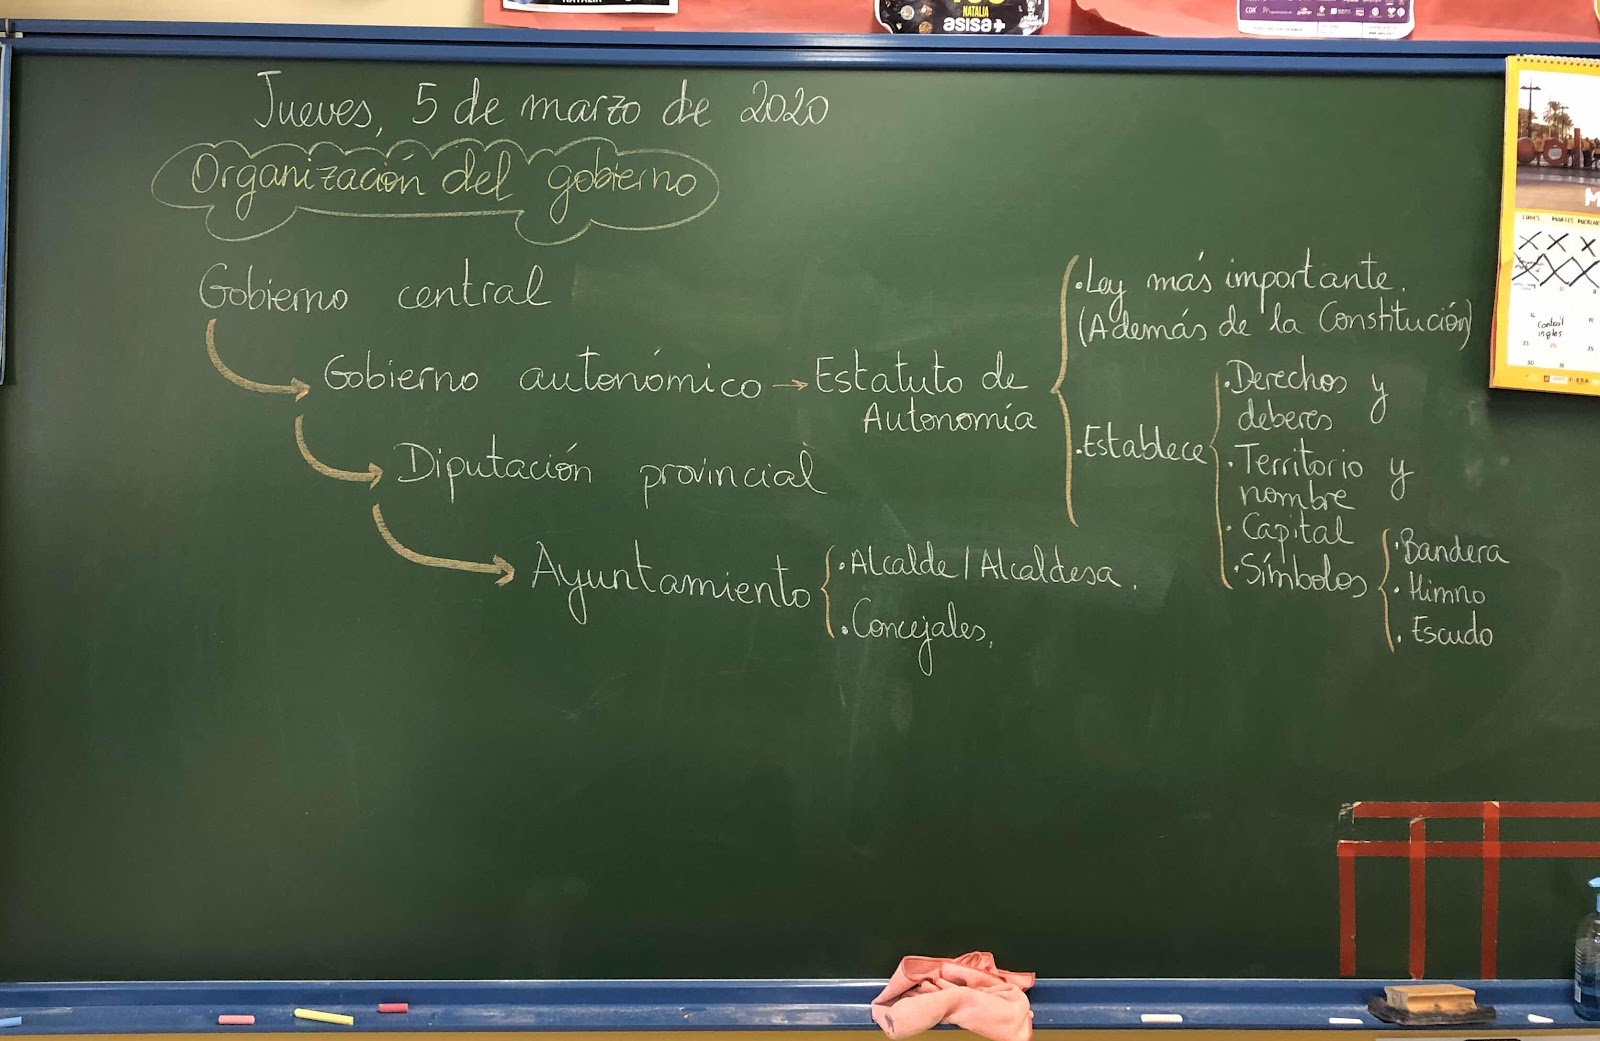 NATALIA
NATALIA
asisa+
COX
Jueves, 5 de marzo de 2020
Organización del gobierno
Gobierno central
Gobierno autonómico → Estatuto de
Autonomía
·Ley más importante.
(Además de la Constitución)
·Establece
·Derechos y
deberes
·Territorio y
nombre
·Capital
·Símbolos
·Bandera
·Himno
·Escudo
Diputación provincial
Ayuntamiento
·Alcalde/Alcaldesa.
·Concejales.
M
LUNES MARTES
Control
inglés
23
25
30